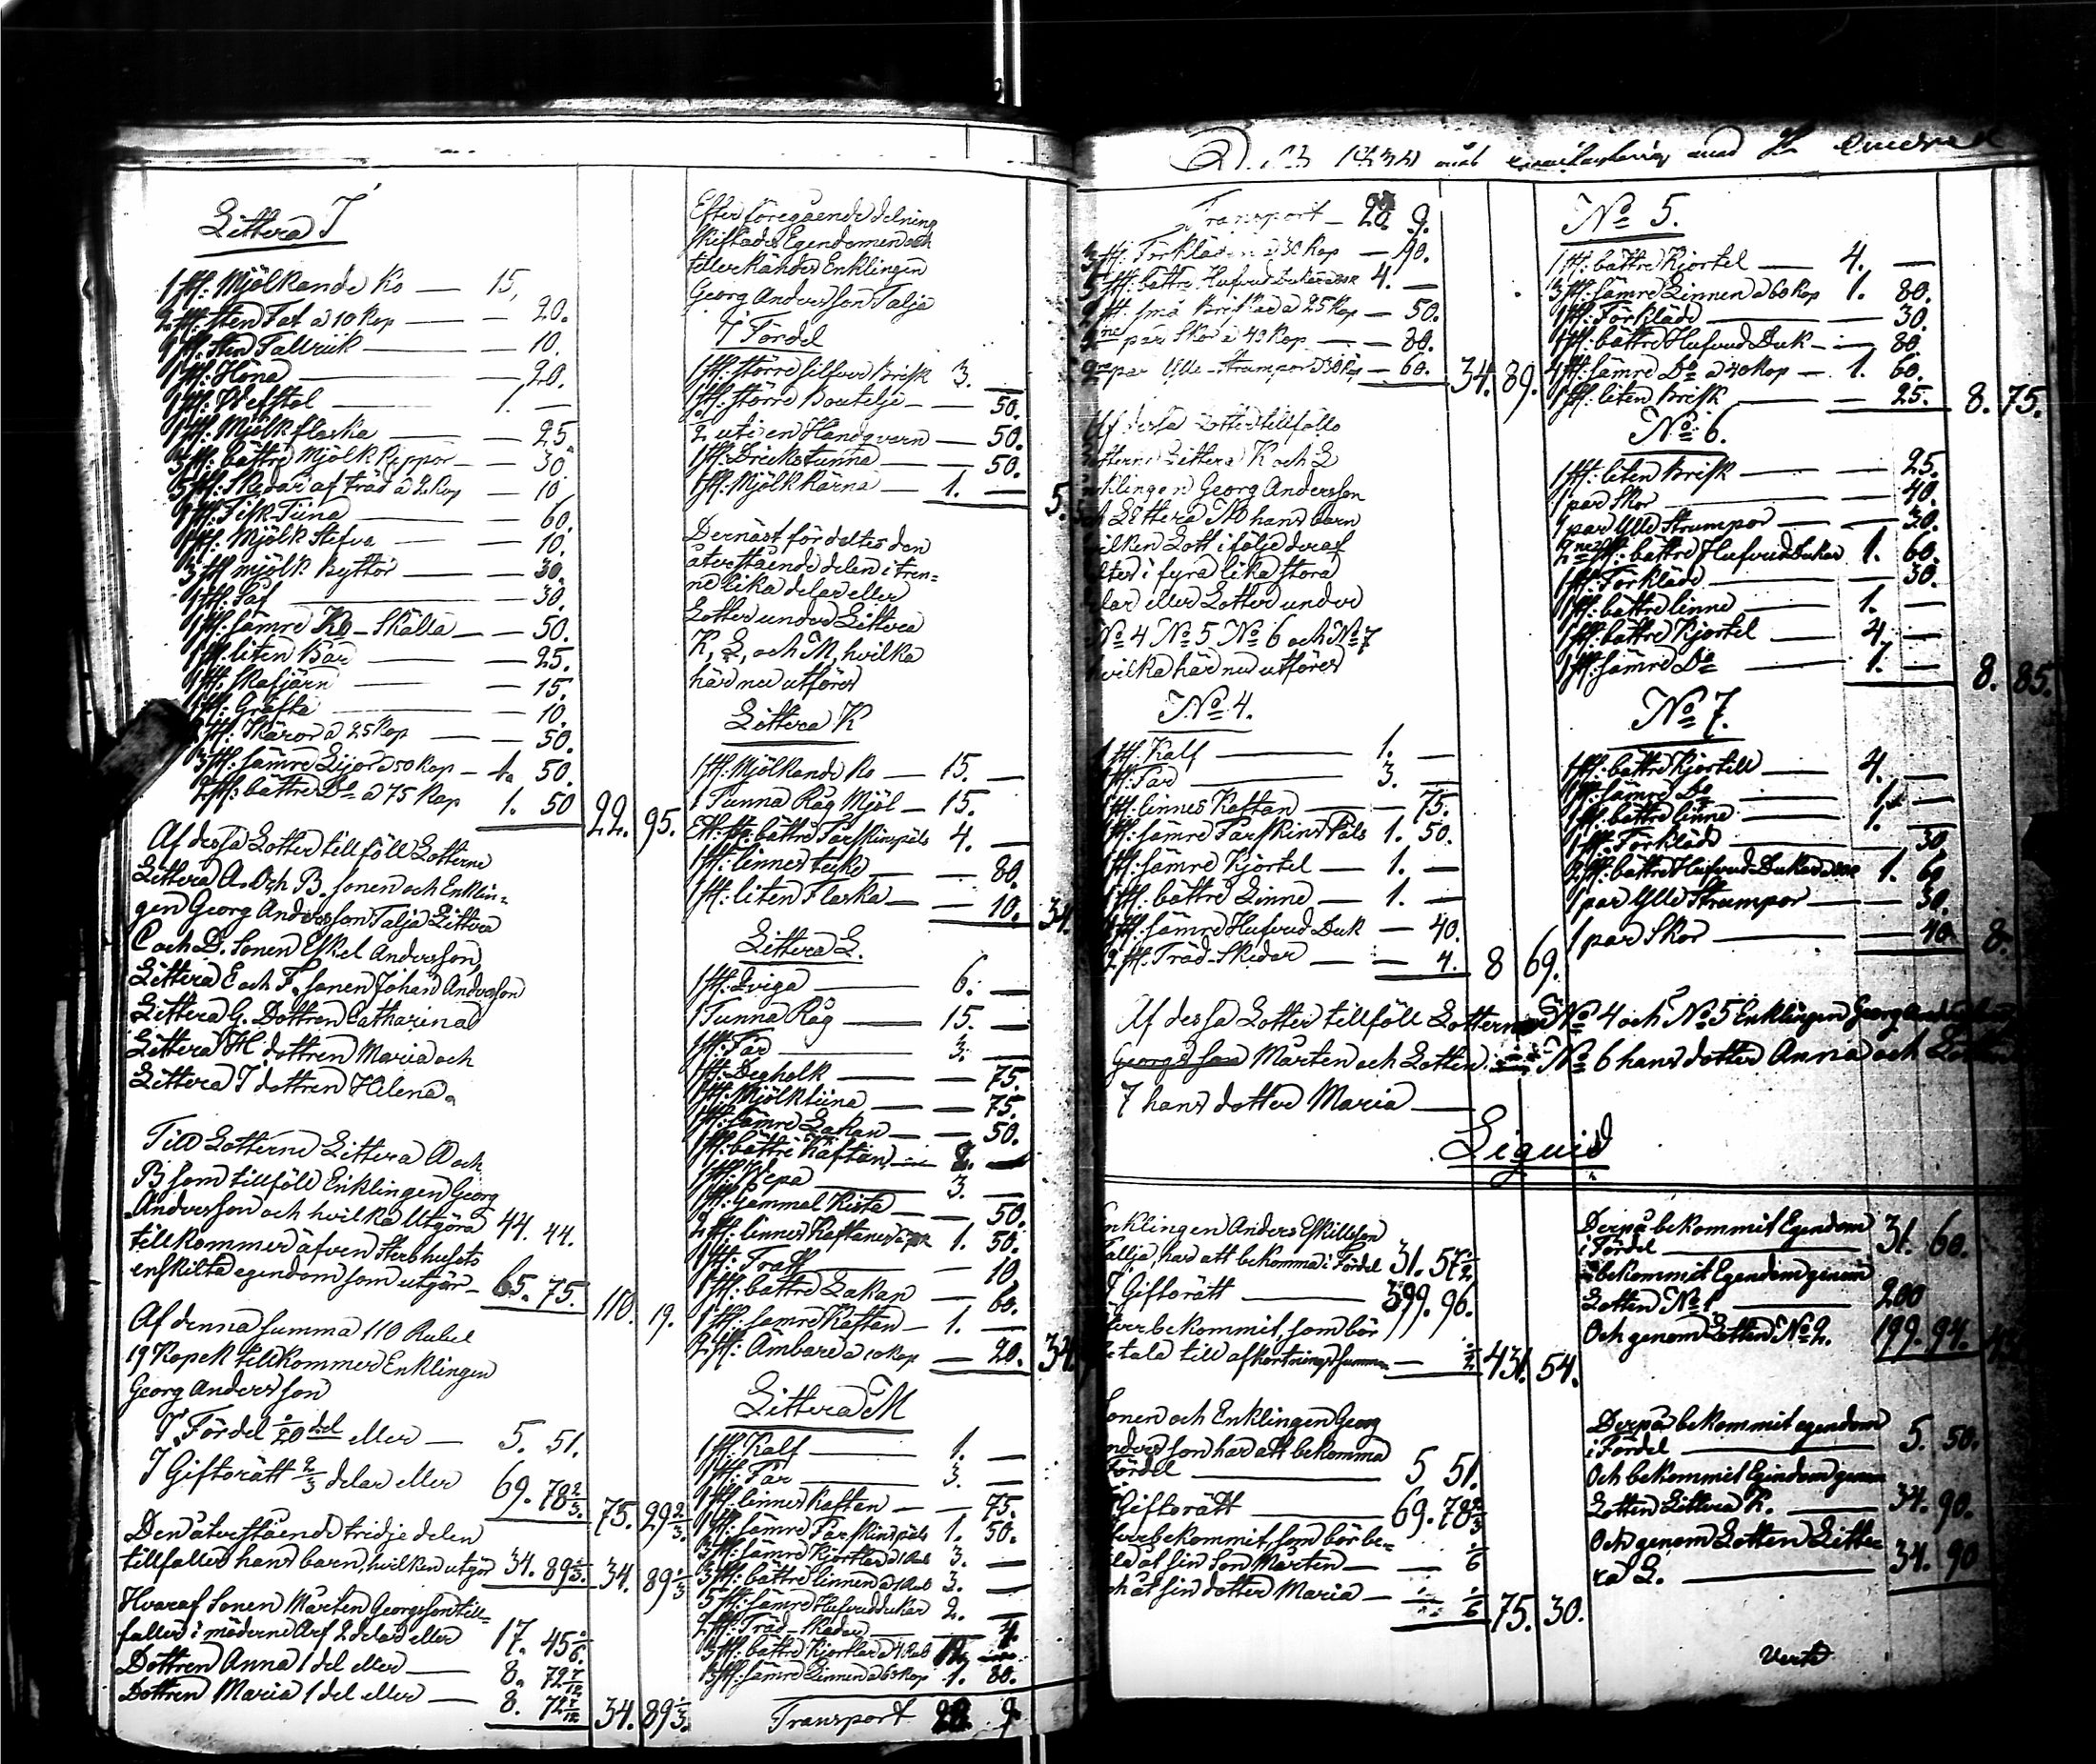 Littera I
1 st: Mjölkande Ko — 15.
2 st: Sten Fat a 10 Kop — — 20.
1 st: Sten Tallrik — — 10.
1 st: Höna — — 20.
1 st: Wefstol — 1. —
1 st: Mjölkflaska — — 25.
3 st: bättre Mjölk — — 30.
5 st: Skedar af träd a 2 Kop — 10
1 st: Fisk Tiina — — 60.
1 st: Mjölk Stefva — — 10.
3 st mjölk Byttor — — 30.
1 st: Såf — — 30.
1 st: sämre Ko-Skälla — — 50.
1 st: liten Bär — — 25.
1 st: Skafjärn — — 15.
1 st: Gräfta — — 10.
2 st: Skäror a 25 Kop — — 50.
3 st: sämre Lijor a 50 Kop — 1. 50.
2 st: bättre Do a 75 Kop 1. 50 22. 95.
Af dessa Lotter tillföll Lotterne
Littera A. och B. sonen och Enklin-
gen Georg Andersson Talja Littera
C och D. Sonen Eskel Andersson,
Littera E och F. sonen Johan Andersson
Littera G. Dottren Catharina
Littera H dottren Maria och
Littera I dottren Helena.
Till Lotterne Littera A och
B som tillföll Enklingen Georg
Andersson och hvilka Utgöra 44. 44.
tillkommer äfven Sterbhusets
enskilta egendom som utgör — 65. 75. 110. 19.
Af denna summa 110 Rubel
19 Kopek tillkommer Enklingen
Georg Andersson
I Fördel 1/20 del eller — 5. 51.
I Giftorätt 2/3 delar eller 69. 78 2/3. 75. 29 2/3
Den återstående tridje delen
tillfaller hans barn, hvilken utgör 34. 89 1/3. 34. 89 1/3
Hvaraf Sonen Mårten Georgsson till-
faller i möderne Arf 2 delar eller 17. 45 1/6.
Dottren Anna 1 del eller — 8. 72 7/12
Dottren Maria 1 del eller — 8. 72 7/12 34. 89 1/3.
Efter föregående delning
skiftades Egendomen och
tillerkändes Enklingen
Georg Andersson Talja
I Fördel
1 st: större silfver Brisk 3. —
1 st: större Boutelje — — 50.
1/2 uti en Handqvarn — 50.
1 st: Dricks tunna — — 50.
1 st: Mjölk kärna — 1. — 5.
Dernäst fördeltes den
återstående delen i tren-
ne lika delar eller
Lotter under Littera
K, L, och M, hvilka
här nu utföres
Littera K
1 st: Mjölkande Ko — 15. —
1 Tunna Råg Mjöl — 15.
Ett st: bättre Fårskinspäls 4. —
1 st: linnes teike — — 80.
1 st: liten Flaska — — 10. 34.
Littera L.
1 st: Qviga — 6. —
1 Tunna Råg — 15. —
1 st: Får — 3. —
1 st: Degholk — — 75.
1 st: Mjölktiina — — 75.
1 st: sämre Lakan — — 50.
1 st: bättre Kaftan — 2. —
1 st: Wepa — 3. —
1 st: Gammal Kista — — 50.
2 st: linnes Kaftaner 1. 50.
1 st: Tratt — — 10
1 st: bättre Lakan — 60.
1 st: sämre Kaftan — 1. —
2 st: Ämbare a 10 Kop — 20. 34.
Littera M
1 st: Kalf — 1. —
1 st: Får — 3. —
1 st: linnes Kaftan — — 75.
1 st: sämre Fårskinspäls 1. 50.
3 st: sämre Kjortlar a 1 Rub 3. —
3 st: bättre linnen a 1 Rub 3. —
5 st: sämre Hufvuddukar 2. —
2 st: Träd-Skedar — 4.
3 st: bättre Kjortlar a 4 Rub 12. —
3 st: sämre Linnen a 60 Kop 1. 80.
Transport 28. 9.
Transport — 28. 9.
3 st: Förkläden a 30 Kop — 90.
5 st: bättre Hufvud Dukar 4. —
2 st: små Briskar a 25 Kop — 50.
2ne par Skor a 40 Kop — — 80.
2ne par Ylle Strumpor a 30 Kop — 60. 34. 89.
Af dessa Lotter tillföllo
Lotterne Littera K och L
Enklingen Georg Andersson
och Littera M hans barn
hvilken Lott i följe deraf
deltes i fyra lika stora
delar eller Lotter under
No 4 No 5 No 6 och No 7
hvilka här nu utföres
No 4.
1 st: Kalf — 1. —
1 st: Får — 3. —
1 st: linnes Kaftan — — 75.
1 st: sämre Fårskins Päls 1. 50.
1 st: sämre Kjortel — 1. —
1 st: bättre Linne — 1. —
1 st: sämre Hufvud Duk — 40.
2 st: Träd-Skedar — — 4. 8 69.
No 5.
1 st: bättre Kjortel — 4. —
3 st: sämre Linnen a 60 Kop 1. 80.
1 st: Förkläde — — 30.
1 st: bättre Hufvud Duk — 80.
4 st: sämre Do a 40 Kop — 1. 60.
1 st: liten Brisk — — 25. 8. 75.
No 6.
1 st: liten Brisk — — 25.
1 par Skor — — 40.
1 par Ylle Strumpor — — 30.
2ne st: bättre Hufvud Dukar 1. 60.
1 st: Förkläde — — 30.
1 st: bättre linne — 1. —
1 st: bättre Kjortel — 4. —
1 st: sämre Do — 1. — 8. 85.
No 7.
1 st: bättre Kjortel — 4. —
1 st: sämre Do — 1. —
1 st: bättre linne — 1. —
1 st: Förkläde — 30.
2 st: bättre Hufvud-Dukar 1. 60
1 par Ylle Strumpor — — 30.
1 par Skor — — 40. 8.
Af dessa Lotter tillföll Lotterne No 4 och No 5 Enklingen Georg
Georgs son Mårten och Lotten No 6 hans dotter Anna och Lotten
7 hans dotter Maria —
Liquid
Enklingen Anders Eskillsson
Tallja, har att bekomma i Fördel 31. 57 1/2
I Giftorätt — 399. 96.
Öfverbekommit, som bör
betala till afkortningssumman — 1/2 431. 54.
Derpå bekommit Egendom
i Fördel — 31. 60.
bekommit Egendom genom
Lotten No 1 — 200
Och genom Lotten No 2. 199. 94.
Sonen och Enklingen Georg
Andersson har att bekomma
Fördel — 5 51.
Giftorätt — 69. 78 2/3
Öfverbekommit, som bör be-
tala åt sin son Mårten — — 1/6
och åt sin dotter Maria — 1/6 75. 30.
Derpå bekommit egendom
i Fördel — 5. 50.
Och bekommit Egendom genom
Lotten Littera K. — 34. 90.
Och genom Lotten Litte-
ra L. — 34. 90
Verte